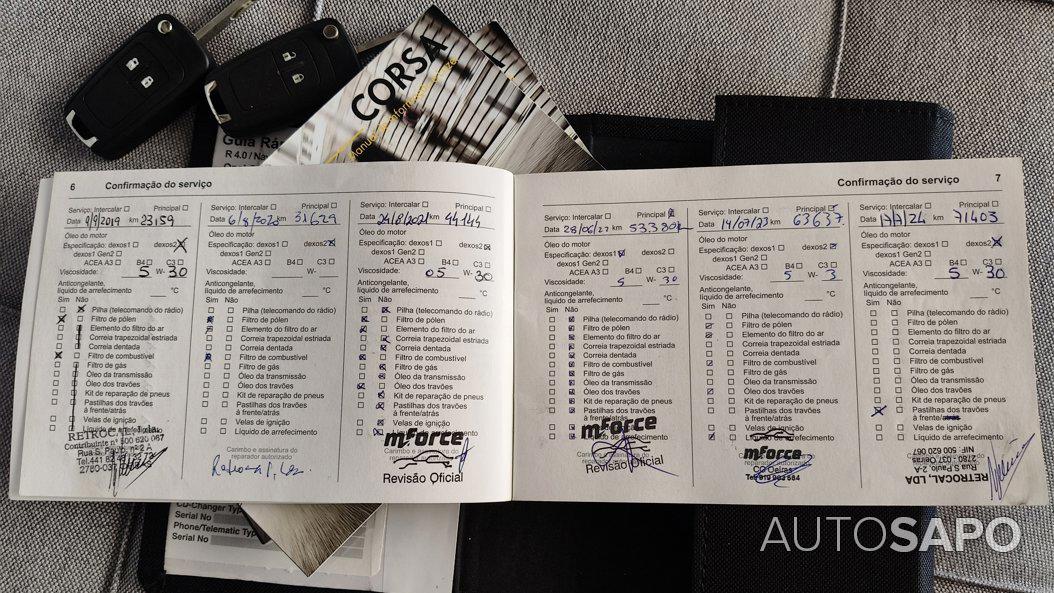 CORSA
Guia Rá
R 4.0 / Na
6 Confirmação do serviço
Serviço: Intercalar Principal
Data 9/9/2019 km 23159
Óleo do motor
Especificação: dexos1 dexos2
dexos1 Gen2
ACEA A3 B4 C3
Viscosidade: 5 W- 30
Anticongelante,
líquido de arrefecimento °C
Sim Não
Pilha (telecomando do rádio)
Filtro de pólen
Elemento do filtro do ar
Correia trapezoidal estriada
Correia dentada
Filtro de combustível
Filtro de gás
Óleo da transmissão
Óleo dos travões
Kit de reparação de pneus
Pastilhas dos travões
à frente/atrás
Velas de ignição
Líquido de arrefecimento
RETROCAL, Lda.
Contribuinte nº 500 620 067
Rua S. Paulo, nº 2 A
Serviço: Intercalar Principal
Data 6/8/2020 km 31629
Óleo do motor
Especificação: dexos1 dexos2
dexos1 Gen2
ACEA A3 B4 C3
Viscosidade: W-
Anticongelante,
líquido de arrefecimento °C
Sim Não
Pilha (telecomando do rádio)
Filtro de pólen
Elemento do filtro do ar
Correia trapezoidal estriada
Correia dentada
Filtro de combustível
Filtro de gás
Óleo da transmissão
Óleo dos travões
Kit de reparação de pneus
Pastilhas dos travões
à frente/atrás
Velas de ignição
Líquido de arrefecimento
Carimbo e assinatura do
reparador autorizado
Serviço: Intercalar Principal
Data 24/8/2021 km 44145
Óleo do motor
Especificação: dexos1 dexos2
dexos1 Gen2
ACEA A3 B4 C3
Viscosidade: 05 W- 30
Anticongelante,
líquido de arrefecimento °C
Sim Não
Pilha (telecomando do rádio)
Filtro de pólen
Elemento do filtro do ar
Correia trapezoidal estriada
Correia dentada
Filtro de combustível
Filtro de gás
Óleo da transmissão
Óleo dos travões
Kit de reparação de pneus
Pastilhas dos travões
à frente/atrás
Velas de ignição
Líquido de arrefecimento
mForce
Carimbo e assinatura do
reparador autorizado
Revisão Oficial
Confirmação do serviço 7
Serviço: Intercalar Principal
Data 28/06/22 km 53380
Óleo do motor
Especificação: dexos1 dexos2
dexos1 Gen2
ACEA A3 B4 C3
Viscosidade: 5 W- 30
Anticongelante,
líquido de arrefecimento °C
Sim Não
Pilha (telecomando do rádio)
Filtro de pólen
Elemento do filtro do ar
Correia trapezoidal estriada
Correia dentada
Filtro de combustível
Filtro de gás
Óleo da transmissão
Óleo dos travões
Kit de reparação de pneus
Pastilhas dos travões
à frente/atrás
Velas de ignição
Líquido de arrefecimento
mForce
Revisão Oficial
Serviço: Intercalar Principal
Data 14/07/23 km 63637
Óleo do motor
Especificação: dexos1 dexos2
dexos1 Gen2
ACEA A3 B4 C3
Viscosidade: 5 W- 3
Anticongelante,
líquido de arrefecimento °C
Sim Não
Pilha (telecomando do rádio)
Filtro de pólen
Elemento do filtro do ar
Correia trapezoidal estriada
Correia dentada
Filtro de combustível
Filtro de gás
Óleo da transmissão
Óleo dos travões
Kit de reparação de pneus
Pastilhas dos travões
à frente/atrás
Velas de ignição
Líquido de arrefecimento
mForce
Oeiras
Serviço: Intercalar Principal
Data 17/7/24 km 71403
Óleo do motor
Especificação: dexos1 dexos2
dexos1 Gen2
ACEA A3 B4 C3
Viscosidade: 5 W- 30
Anticongelante,
líquido de arrefecimento °C
Sim Não
Pilha (telecomando do rádio)
Filtro de pólen
Elemento do filtro do ar
Correia trapezoidal estriada
Correia dentada
Filtro de combustível
Filtro de gás
Óleo da transmissão
Óleo dos travões
Kit de reparação de pneus
Pastilhas dos travões
à frente/atrás
Velas de ignição
Líquido de arrefecimento
RETROCAL, LDA
Rua S Paulo, 2-A
2780 - 037 Oeiras
NIF: 500 620 067
CD-Changer Type
Serial No
Phone/Telematic Typ
Serial No
AUTOSAPO